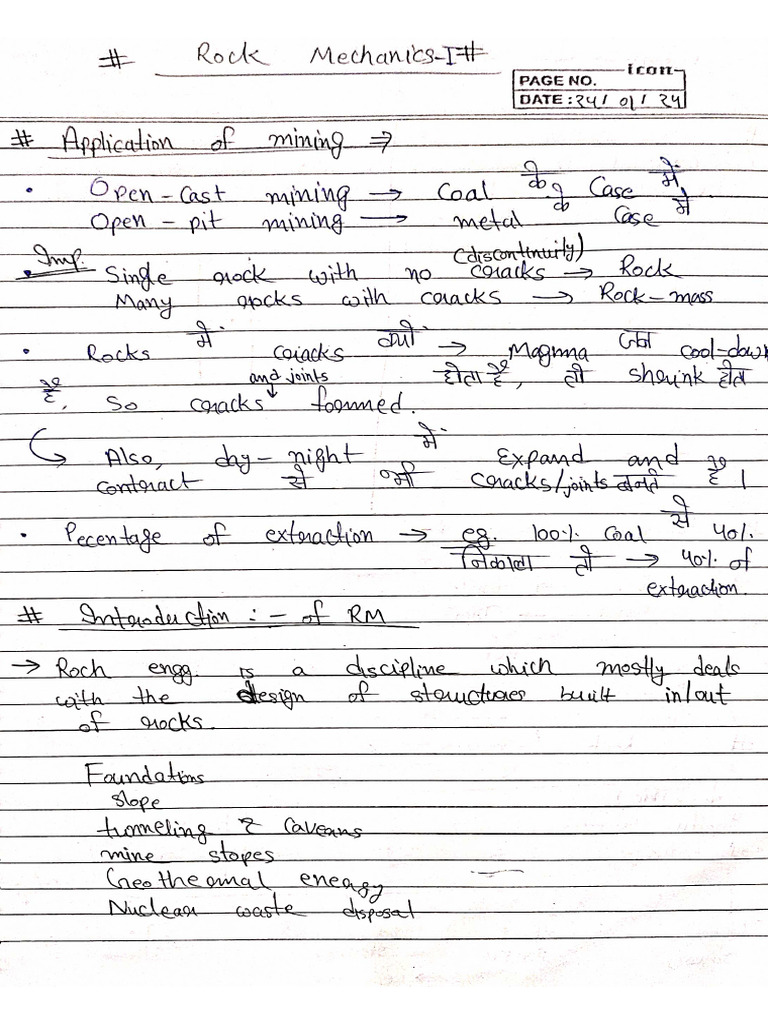 # Rock Mechanics-I #
icon
PAGE NO.
DATE : 24/01/24
# Application of mining ⇒
• Open-Cast mining → Coal के Case में
Open-pit mining → metal के Case में
• Imp. Single rock with no cracks (discontinuity) → Rock
Many rocks with cracks → Rock-mass
• Rocks में cracks क्यों → Magma जब cool-down
होता है, तो shrink होता
है, so cracks and joints formed.
Also, day-night में Expand and
contract से भी cracks/joints बनते है।
• Pecentage of extraction → eg. 100% coal से 40%
निकाला तो → 40% of
extraction.
# Introduction :- of RM
→ Roch engg. is a discipline which mostly deals
with the design of structures built in/out
of rocks.
Foundations
slope
tunneling & Caverns
mine stopes
Geothermal energy
Nuclear waste disposal